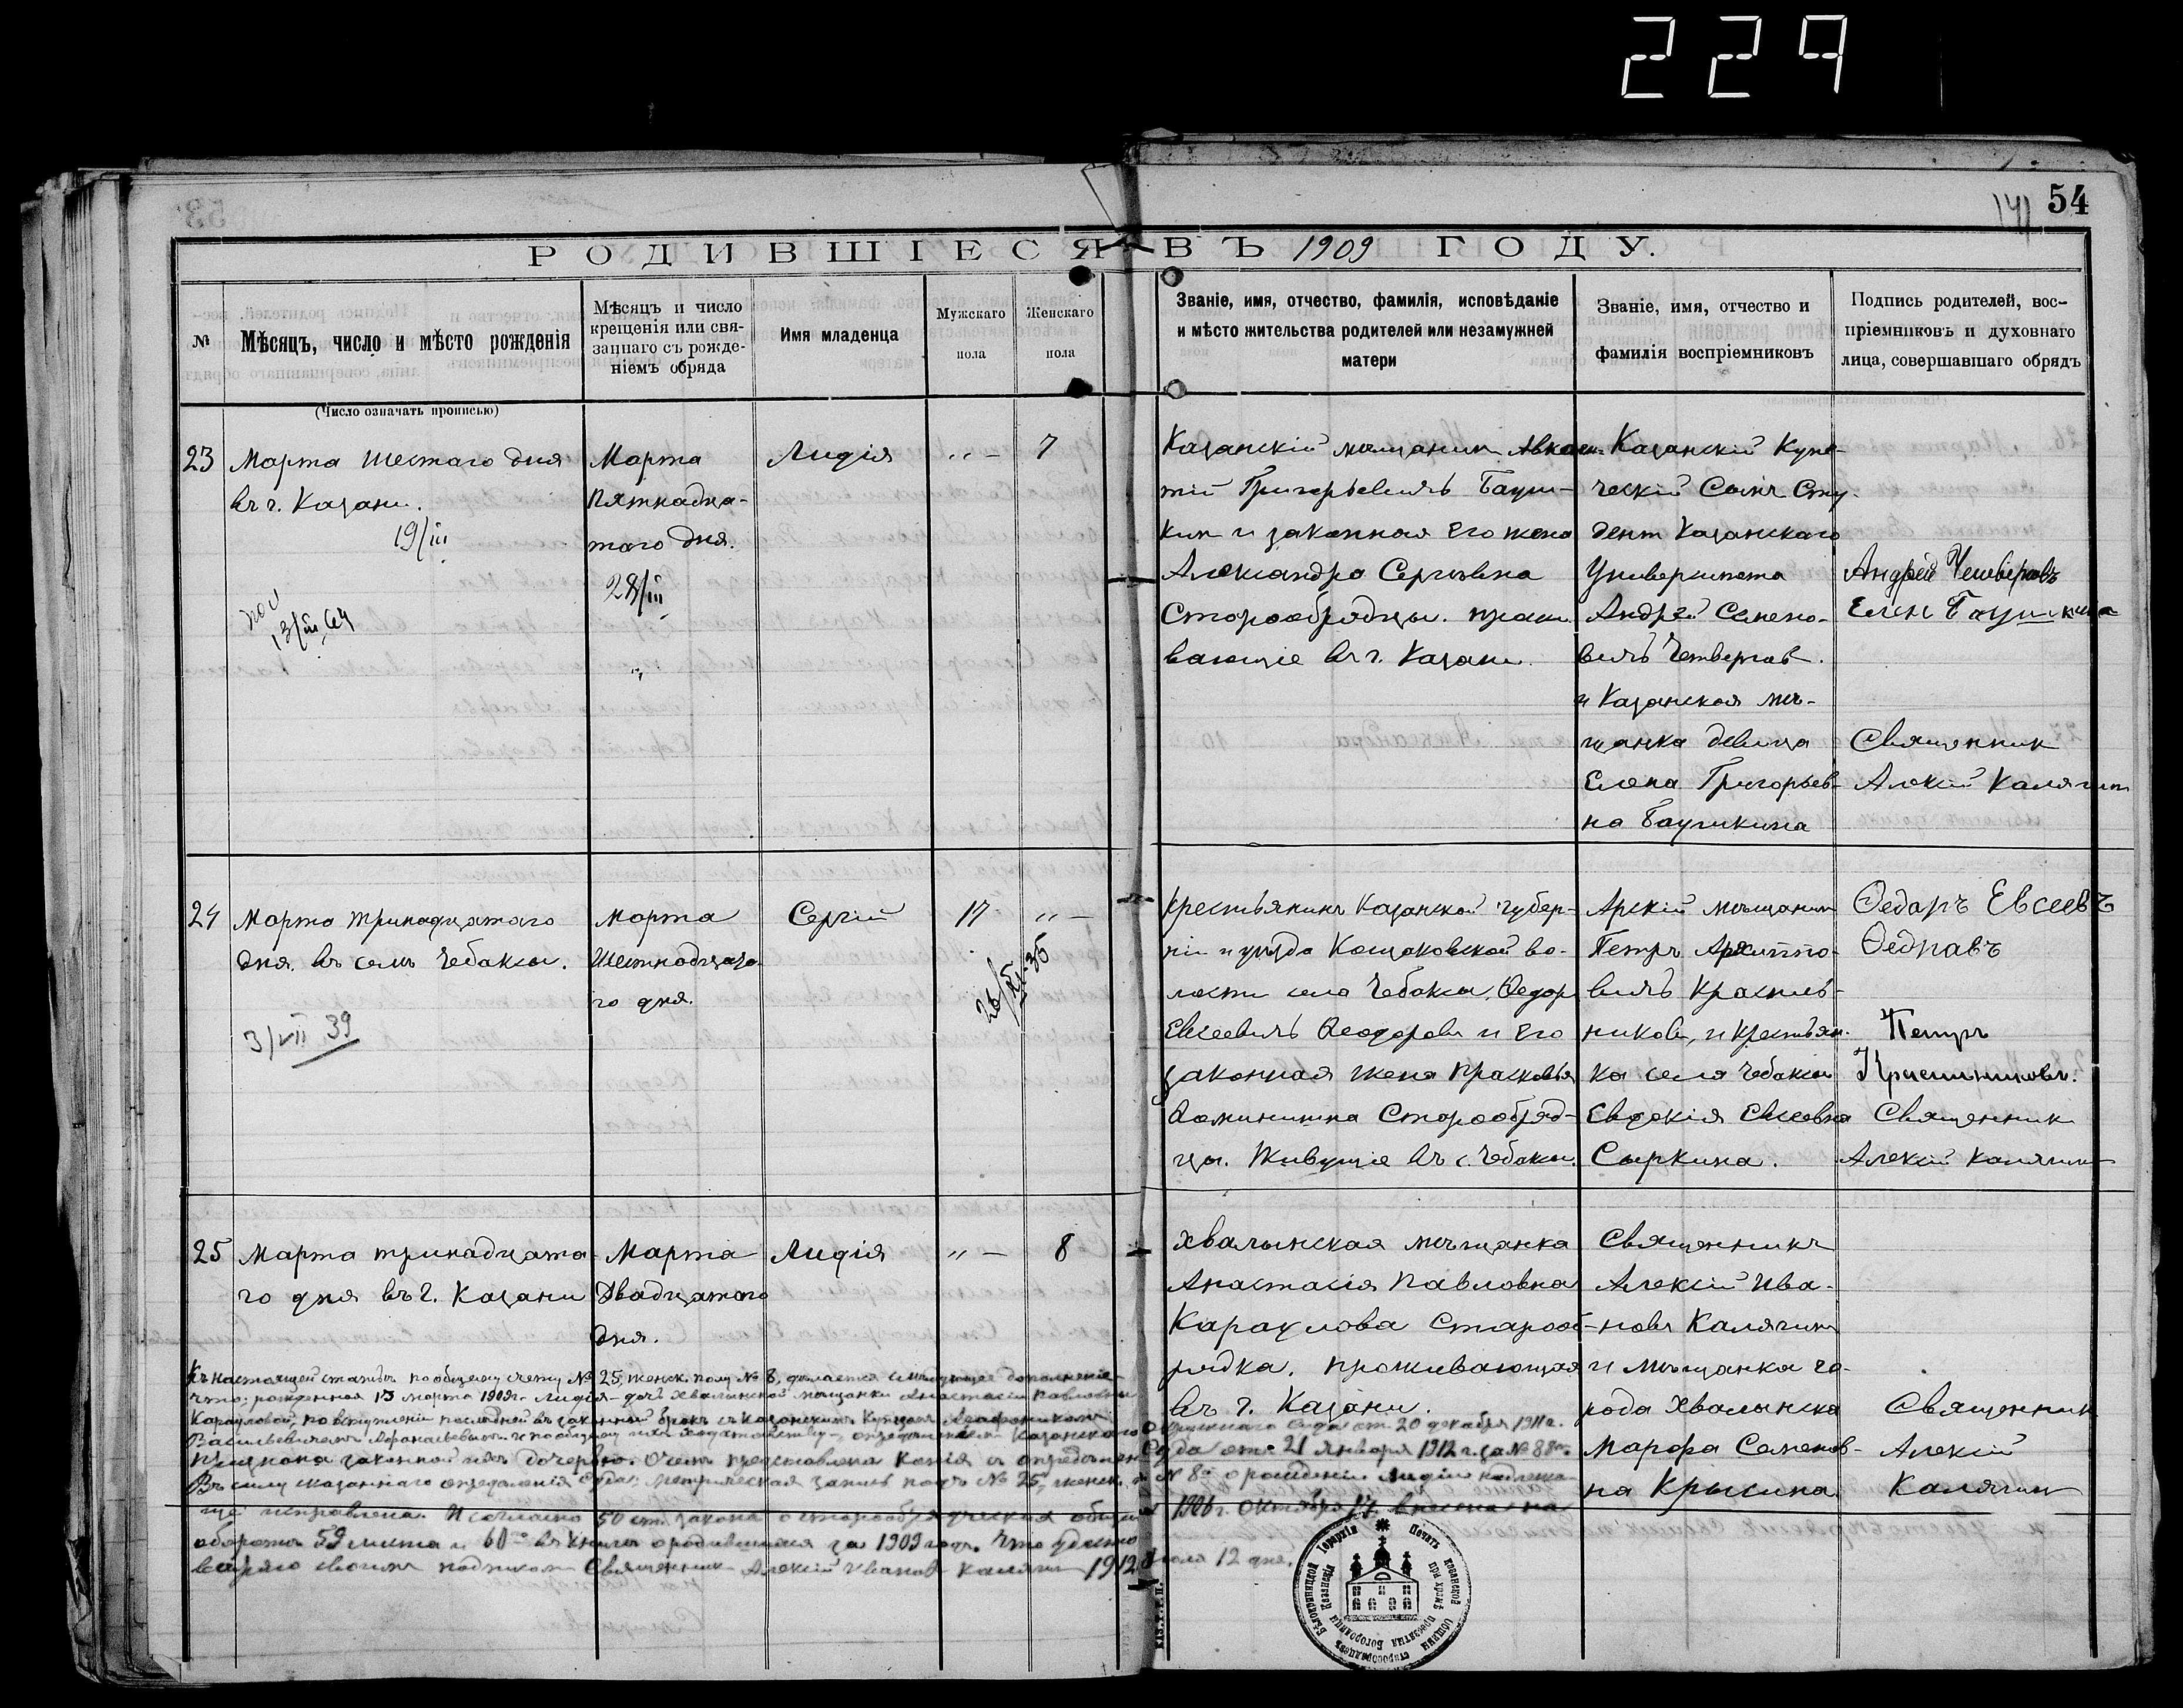 229
141 54
РОДИВШІЕСЯ ВЪ 1909 ГОДУ.
№
Мѣсяцъ, число и мѣсто рожденія
Мѣсяцъ и число
крещенія или свя-
заннаго съ рожде-
ніемъ обряда
Имя младенца
Мужскаго
пола
Женскаго
пола
Званіе, имя, отчество, фамилія, исповѣданіе
и мѣсто жительства родителей или незамужней
матери
Званіе, имя, отчество и
фамилія воспріемниковъ
Подпись родителей, вос-
пріемниковъ и духовнаго
лица, совершавшаго обрядъ
(Число означать прописью)
23
Марта шестаго дня
въ г. Казани.
19/III
13/III 64
Марта
пятнадца-
таго дня.
28/III
Лидія
" —
7
Казанскій мѣщанинъ Авксен-
тій Григорьевичъ Гауш-
кин и законная его жена
Александра Сергѣевна
Старообрядцы. прожи
вающіе въ г. Казани.
Казанскій Купе-
ческій Сынъ Сту-
дент Казанскаго
Университета
Андрей Семено-
вичъ Четвергов.
и Казанская мѣ-
щанка девица
Елена Григорьев-
на Гаушкина
Андрей Четверговъ
Елен Гаушкина
Священник
Алексій Калягин
24
Марта тринадцатаго
дня. въ селѣ Чебакси.
3/VII 39
Марта
Шестнадцата-
го дня.
Сергій
17
" —
Крестьянинъ Казанской губер-
ніи и уѣзда Кощаковской во-
лости села Чебакси, Ѳедор
Евсеевичъ Ѳеодоровъ и его
законная жена Прасковья
Старообряд-
цы. Живущіе въ с. Чебакси.
Арскій мѣщанин
Петръ Архиппо-
вичъ Красиль-
никовъ, и крестьян-
ка села Чебакси
Евдокія Евсеевна
Сыркина.
Ѳедаръ Евсеевъ
Ѳедравъ
Петръ
Красильниковъ.
Священник
Алексій Калягин
25
Марта тринадцата-
го дня въ г. Казани
Марта
Двадцатаго
дня.
Лидія
" —
8
Хвалынская мѣщанка
Анастасія Павловна
Караулова Старооб-
рядка. проживающая
въ г. Казани.
Священникъ
Алексій Ива-
новъ Калягин
и мѣщанка го-
рода Хвалынска
Марфа Семенов-
на Крысина
Священник
Алексій
Калягин
Къ настоящей статьѣ по общему счету № 25, женск. полу № 8, дѣлается слѣдующее дополненіе
что: рожденная 13 марта 1909 г. Лидія – дочь Хвалынской мѣщанки Анастасіи Павловны
Карауловой, по вступленіи послѣдней въ законный бракъ съ Казанскимъ Купцомъ
Васильевичемъ Афанасьевымъ и по общему ихъ ходатайству – опредѣленіемъ Казанскаго
Окружнаго Суда от 20 декабря 1911 г.
признана законной ихъ дочерью. О чемъ представлена копія съ опредѣлен
Суда от 21 января 1912 г. за № 88
Въ силу сказаннаго опредѣленія Суда, метрическая запись подъ № 25, женск.
№ 8 о рожденіи Лидіи надлежа-
ще исправлена. И согласно 50 ст. закона о старообрядческих общин
1906 г. октября 17 внесена на
оборотѣ 59 листа и 60 въ книгу о родившихся за 1909 годъ. Что удосто
вѣряю своимъ подписомъ Священник Алексій Иванов Калягин 1912
12 дня.
Печать Казанской общины старообрядцевъ
при храмѣ пресвятыя Богородицы